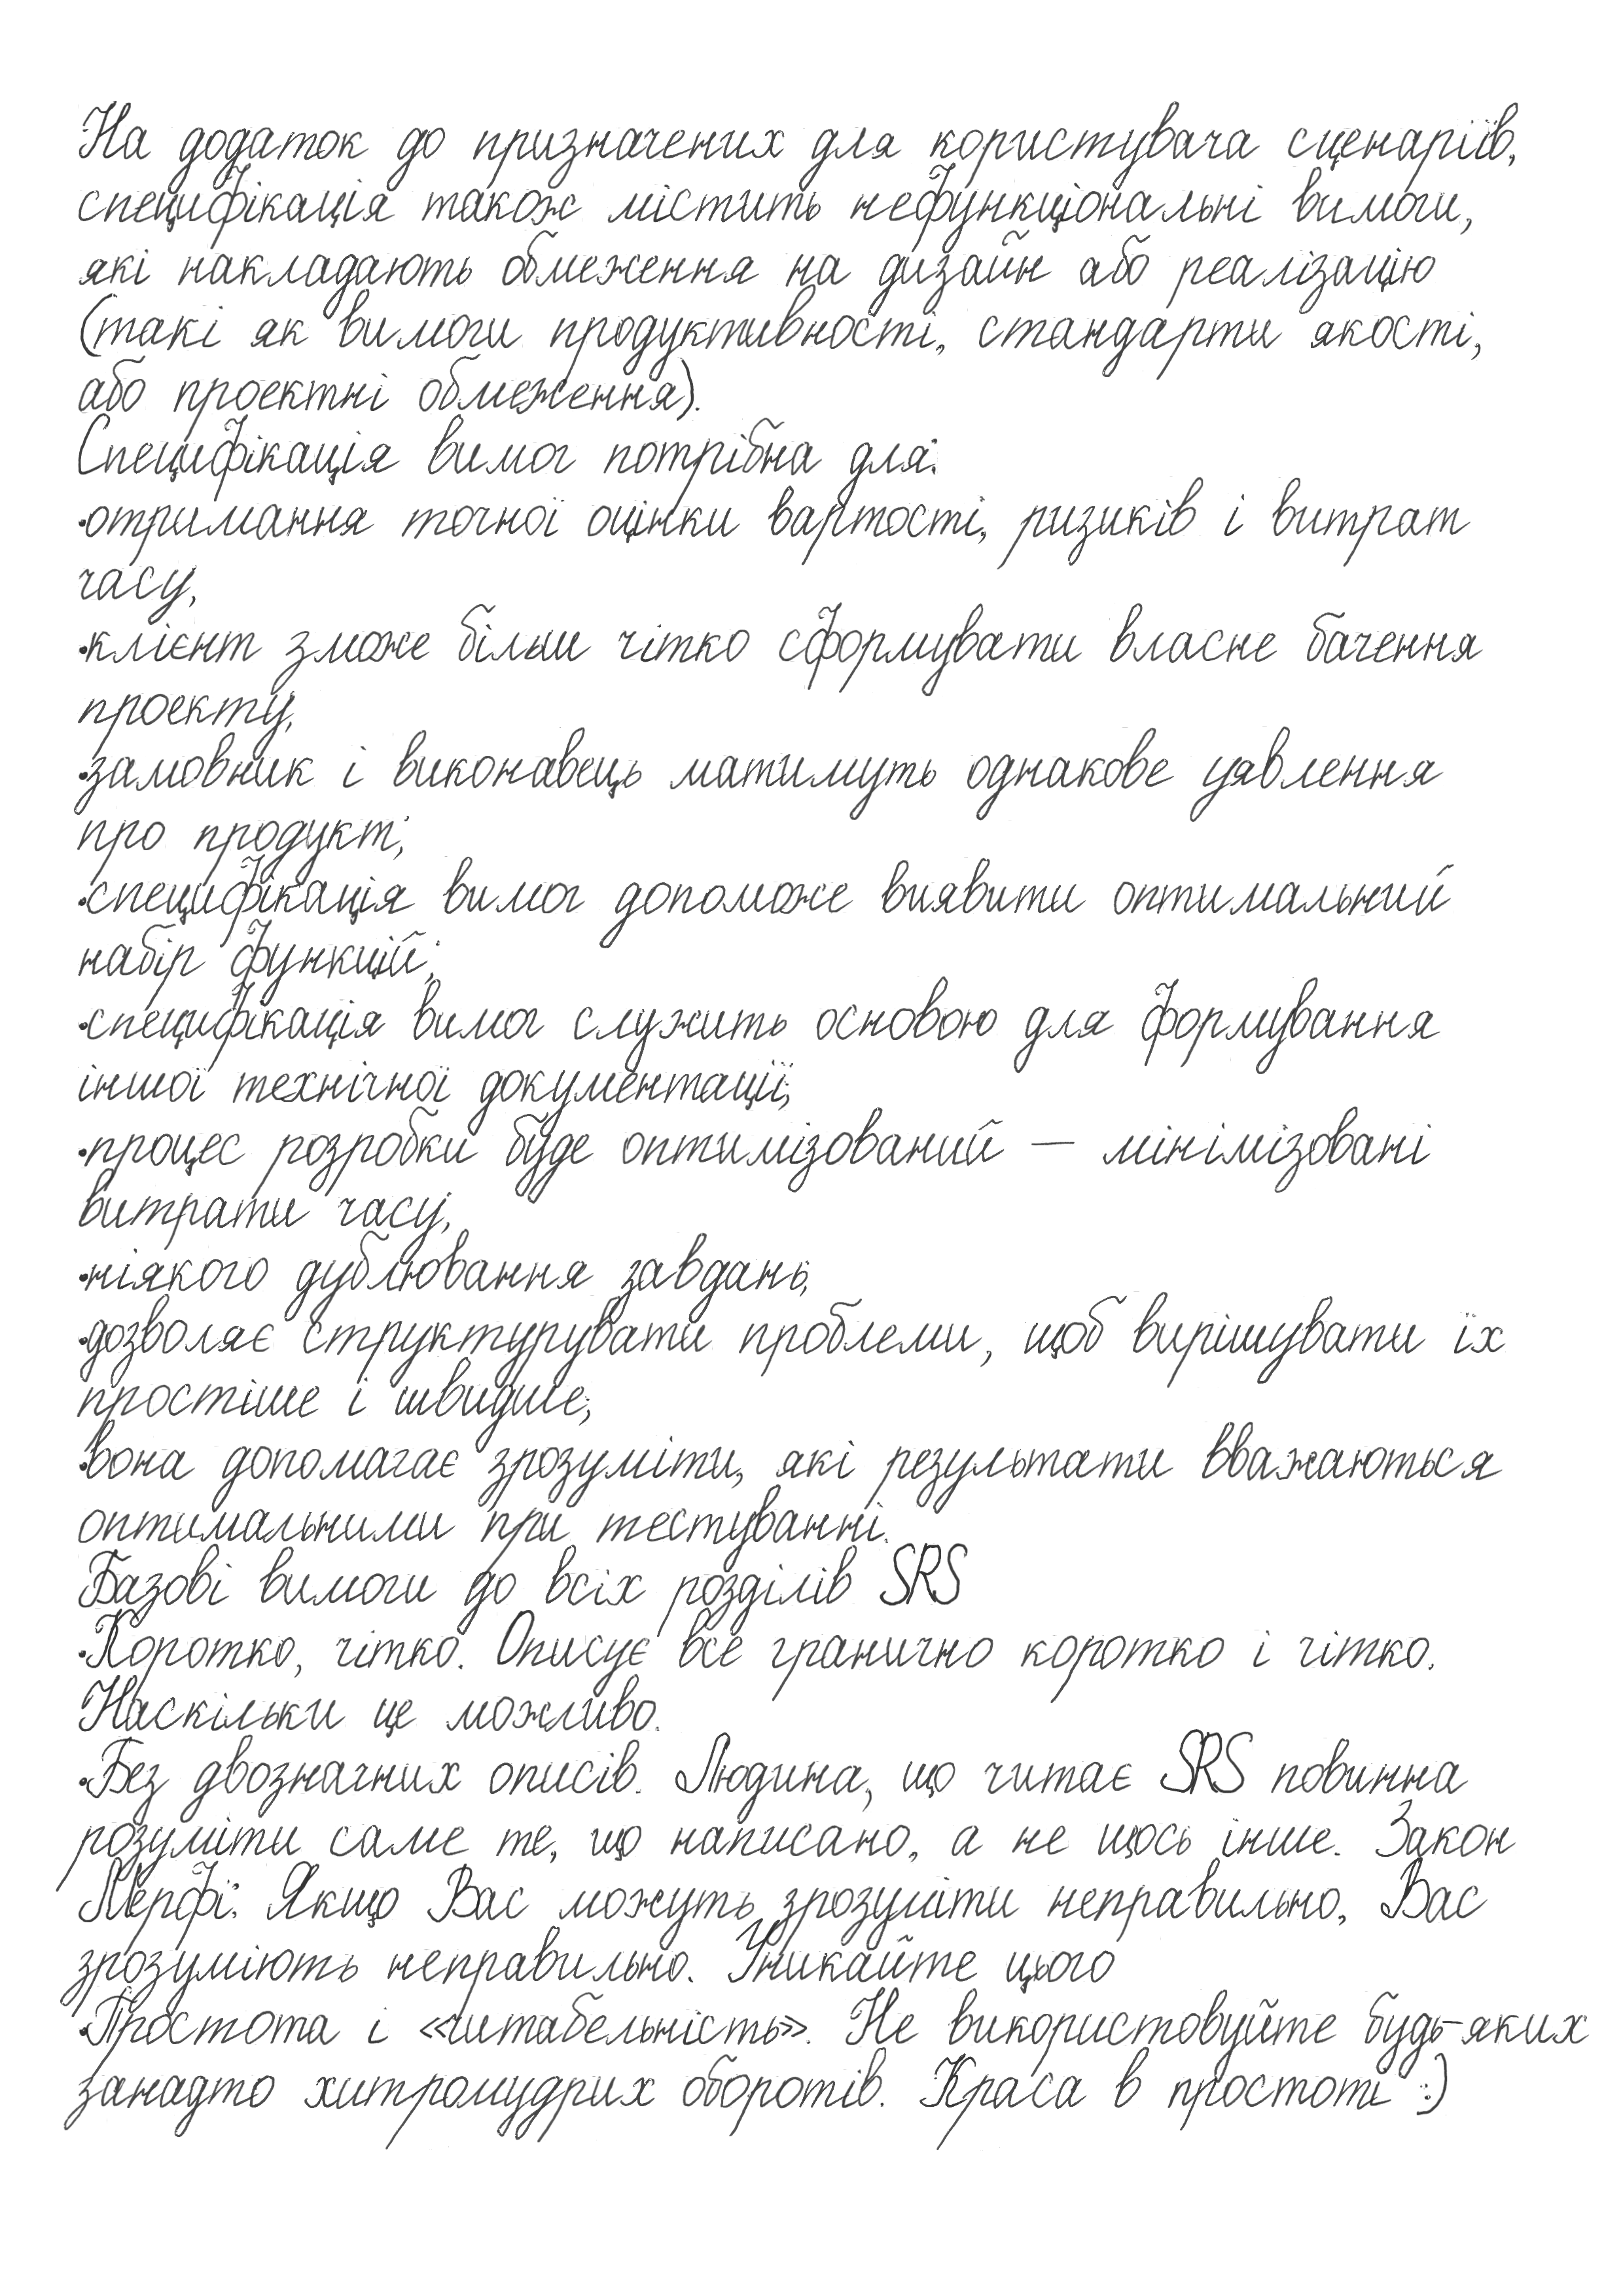 На додаток до призначених для користувача сценаріїв,
специфікація також містить нефункціональні вимоги,
які накладають обмеження на дизайн або реалізацію
(такі як вимоги продуктивності, стандарти якості,
або проектні обмеження).
Специфікація вимог потрібна для:
•отримання точної оцінки вартості, ризиків і витрат
часу;
•клієнт зможе більш чітко сформувати власне бачення
проекту;
•замовник і виконавець матимуть однакове уявлення
про продукт;
•специфікація вимог допоможе виявити оптимальний
набір функцій;
•специфікація вимог служить основою для формування
іншої технічної документації;
•процес розробки буде оптимізований — мінімізовані
витрати часу;
•ніякого дублювання завдань;
•дозволяє структурувати проблеми, щоб вирішувати їх
простіше і швидше;
•вона допомагає зрозуміти, які результати вважаються
оптимальними при тестуванні.
Базові вимоги до всіх розділів SRS
•Коротко, чітко. Описує все гранично коротко і чітко.
Наскільки це можливо.
•Без двозначних описів. Людина, що читає SRS повинна
розуміти саме те, що написано, а не щось інше. Закон
Мерфі: Якщо Вас можуть зрозуміти неправильно, Вас
зрозуміють неправильно. Уникайте цього
•Простота і «читабельність». Не використовуйте будь-яких
занадто хитромудрих оборотів. Краса в простоті :)